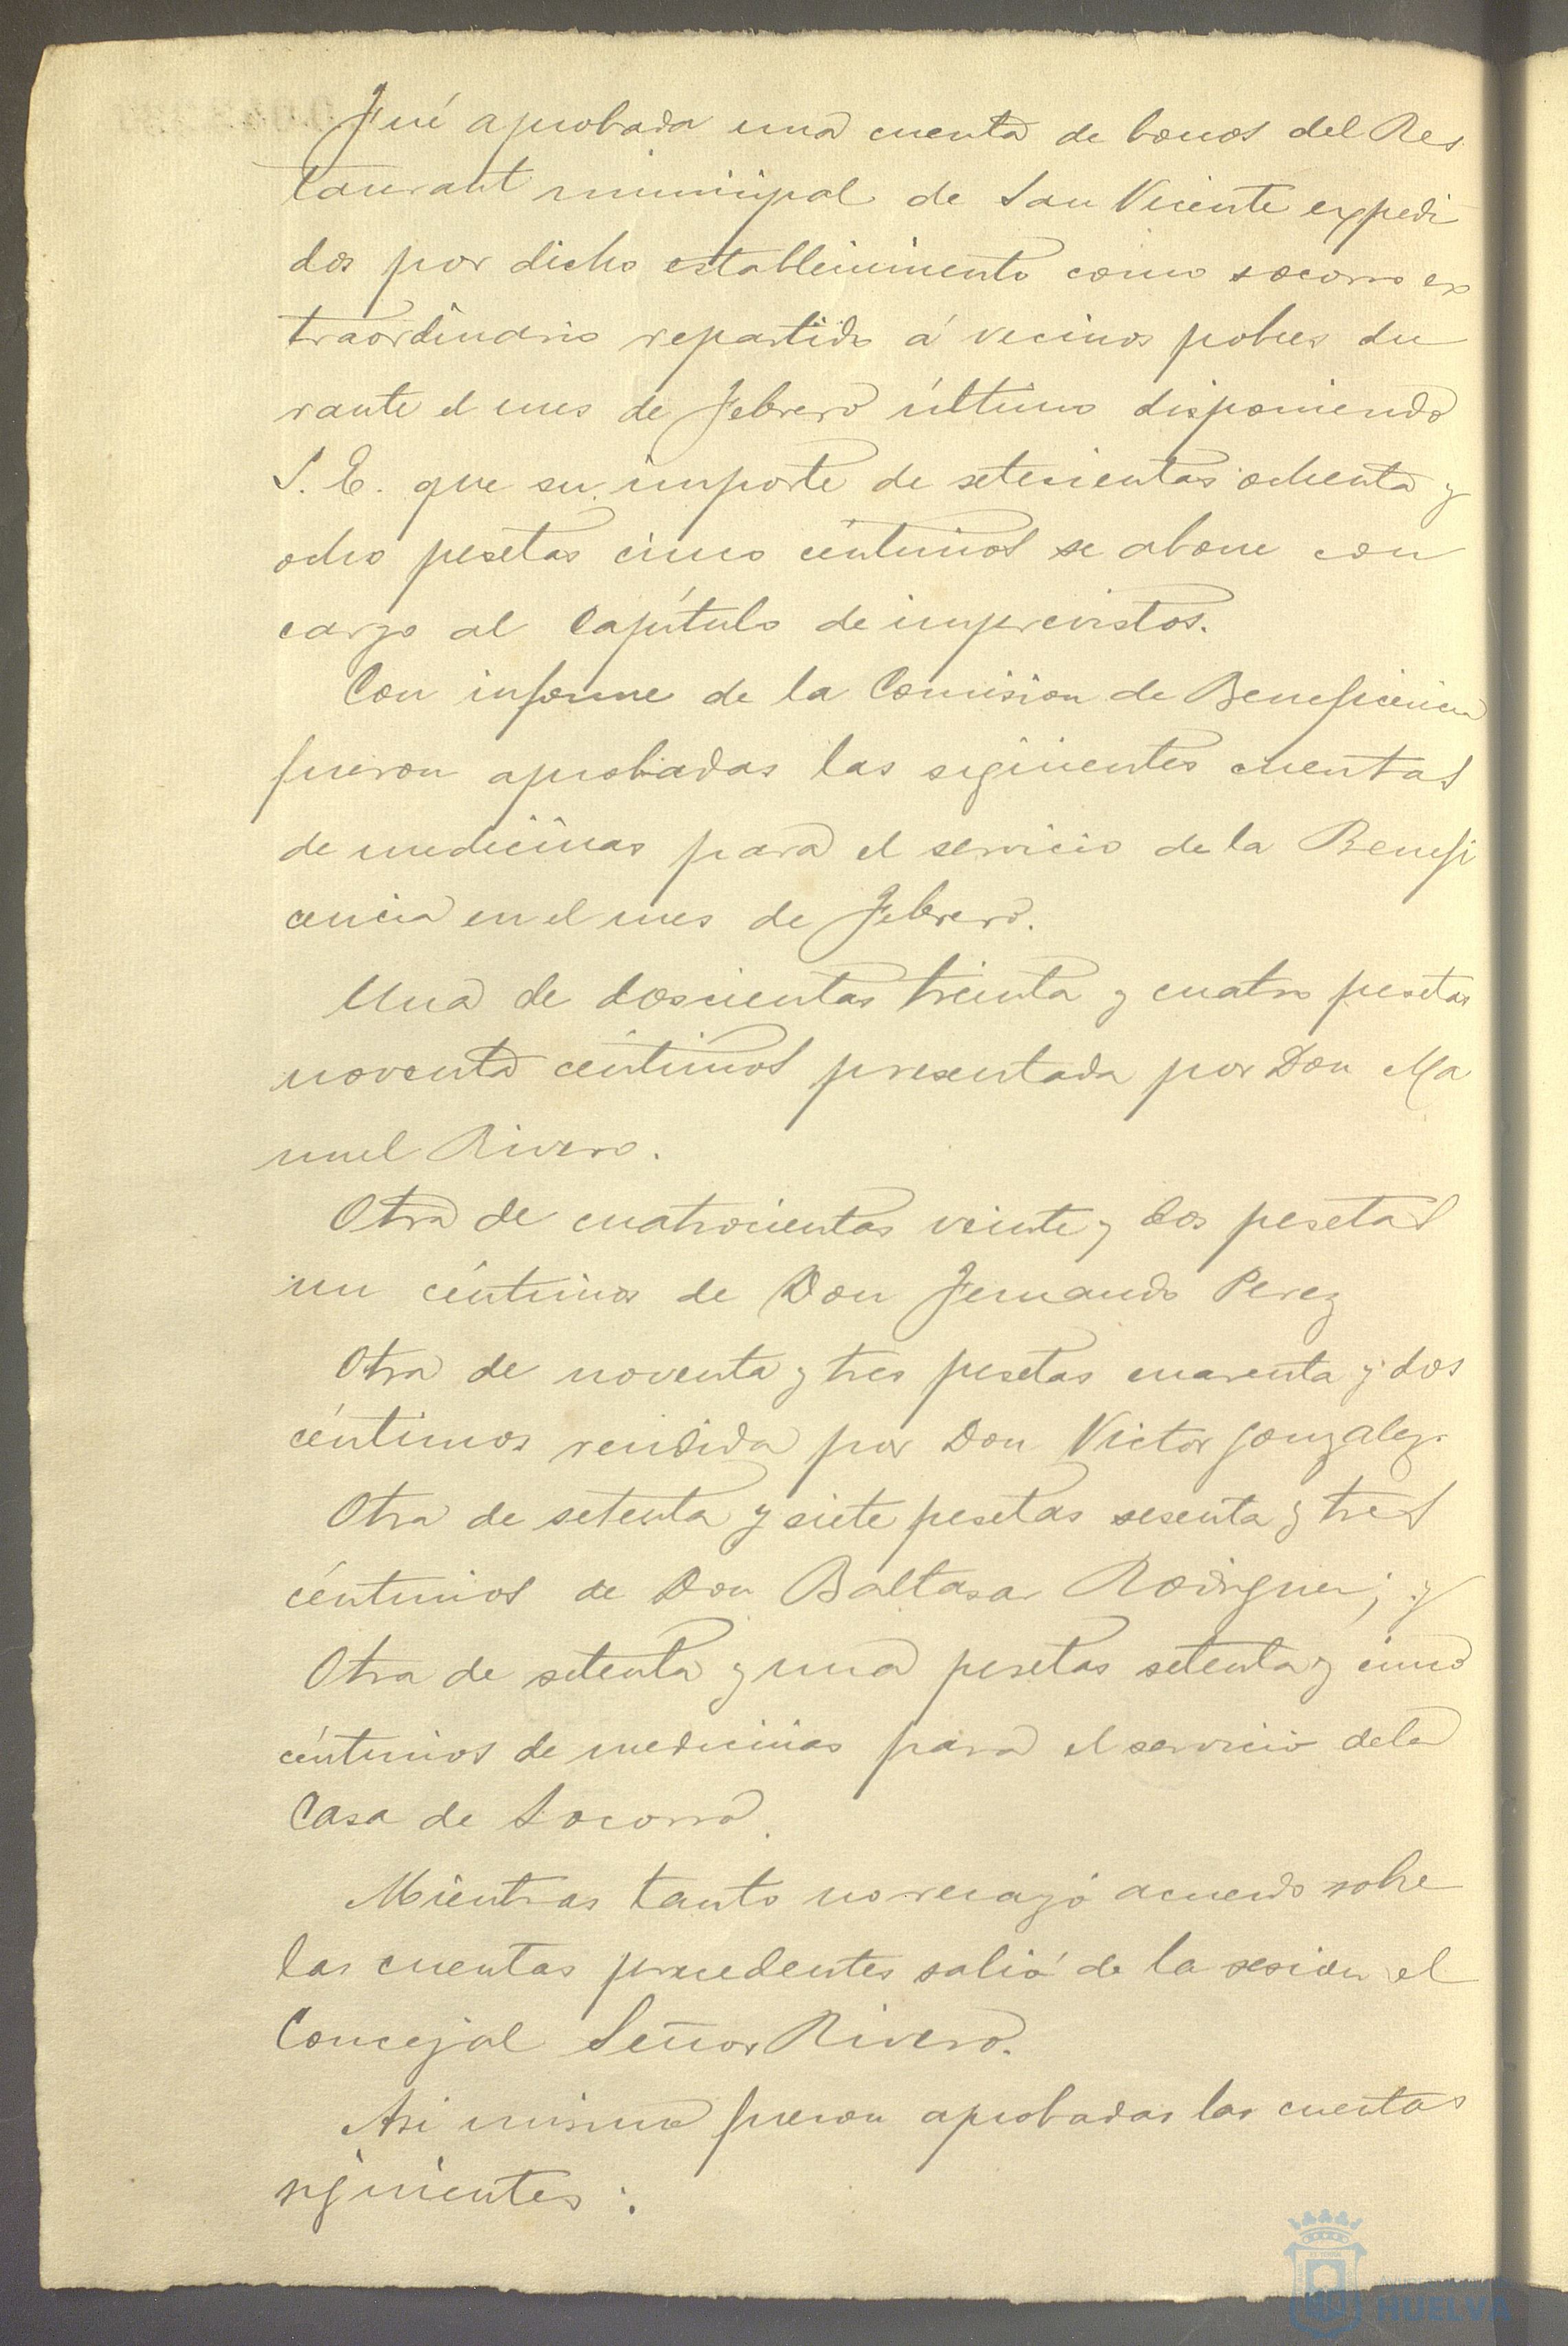 Fué aprobada una cuenta de bonos del Res
taurant municipal de San Vicente expedi
dos por dicho establecimiento como socorro ex
traordinario repartido á vecinos pobres du
rante el mes de Febrero último disponiendo
S. E. que su importe de setecientas ochenta y
ocho pesetas cinco céntimos se abone con
cargo al Capítulo de imprevistos.
Con informe de la Comision de Beneficencia
fueron aprobadas las siguientes cuentas
de medicinas para el servicio de la Benefi
cencia en el mes de Febrero.
Una de doscientas treinta y cuatro pesetas
noventa céntimos presentada por Don Ma
nuel Rivero.
Otra de cuatrocientas veinte y dos pesetas
un céntimos de Don Fernando Perez
Otra de noventa y tres pesetas cuarenta y dos
céntimos rendida por Don Victor Gonzalez.
Otra de setenta y siete pesetas sesenta y tres
céntimos de Don Baltasar Rodriguez; y
Otra de setenta y una pesetas setenta y cinco
céntimos de medicinas para el servicio de la
Casa de Socorro.
Mientras tanto no recayó acuerdo sobre
las cuentas precedentes salió de la sesion el
Concejal Señor Rivero.
Asi mismo fueron aprobadas las cuentas
siguientes:
HUELVA